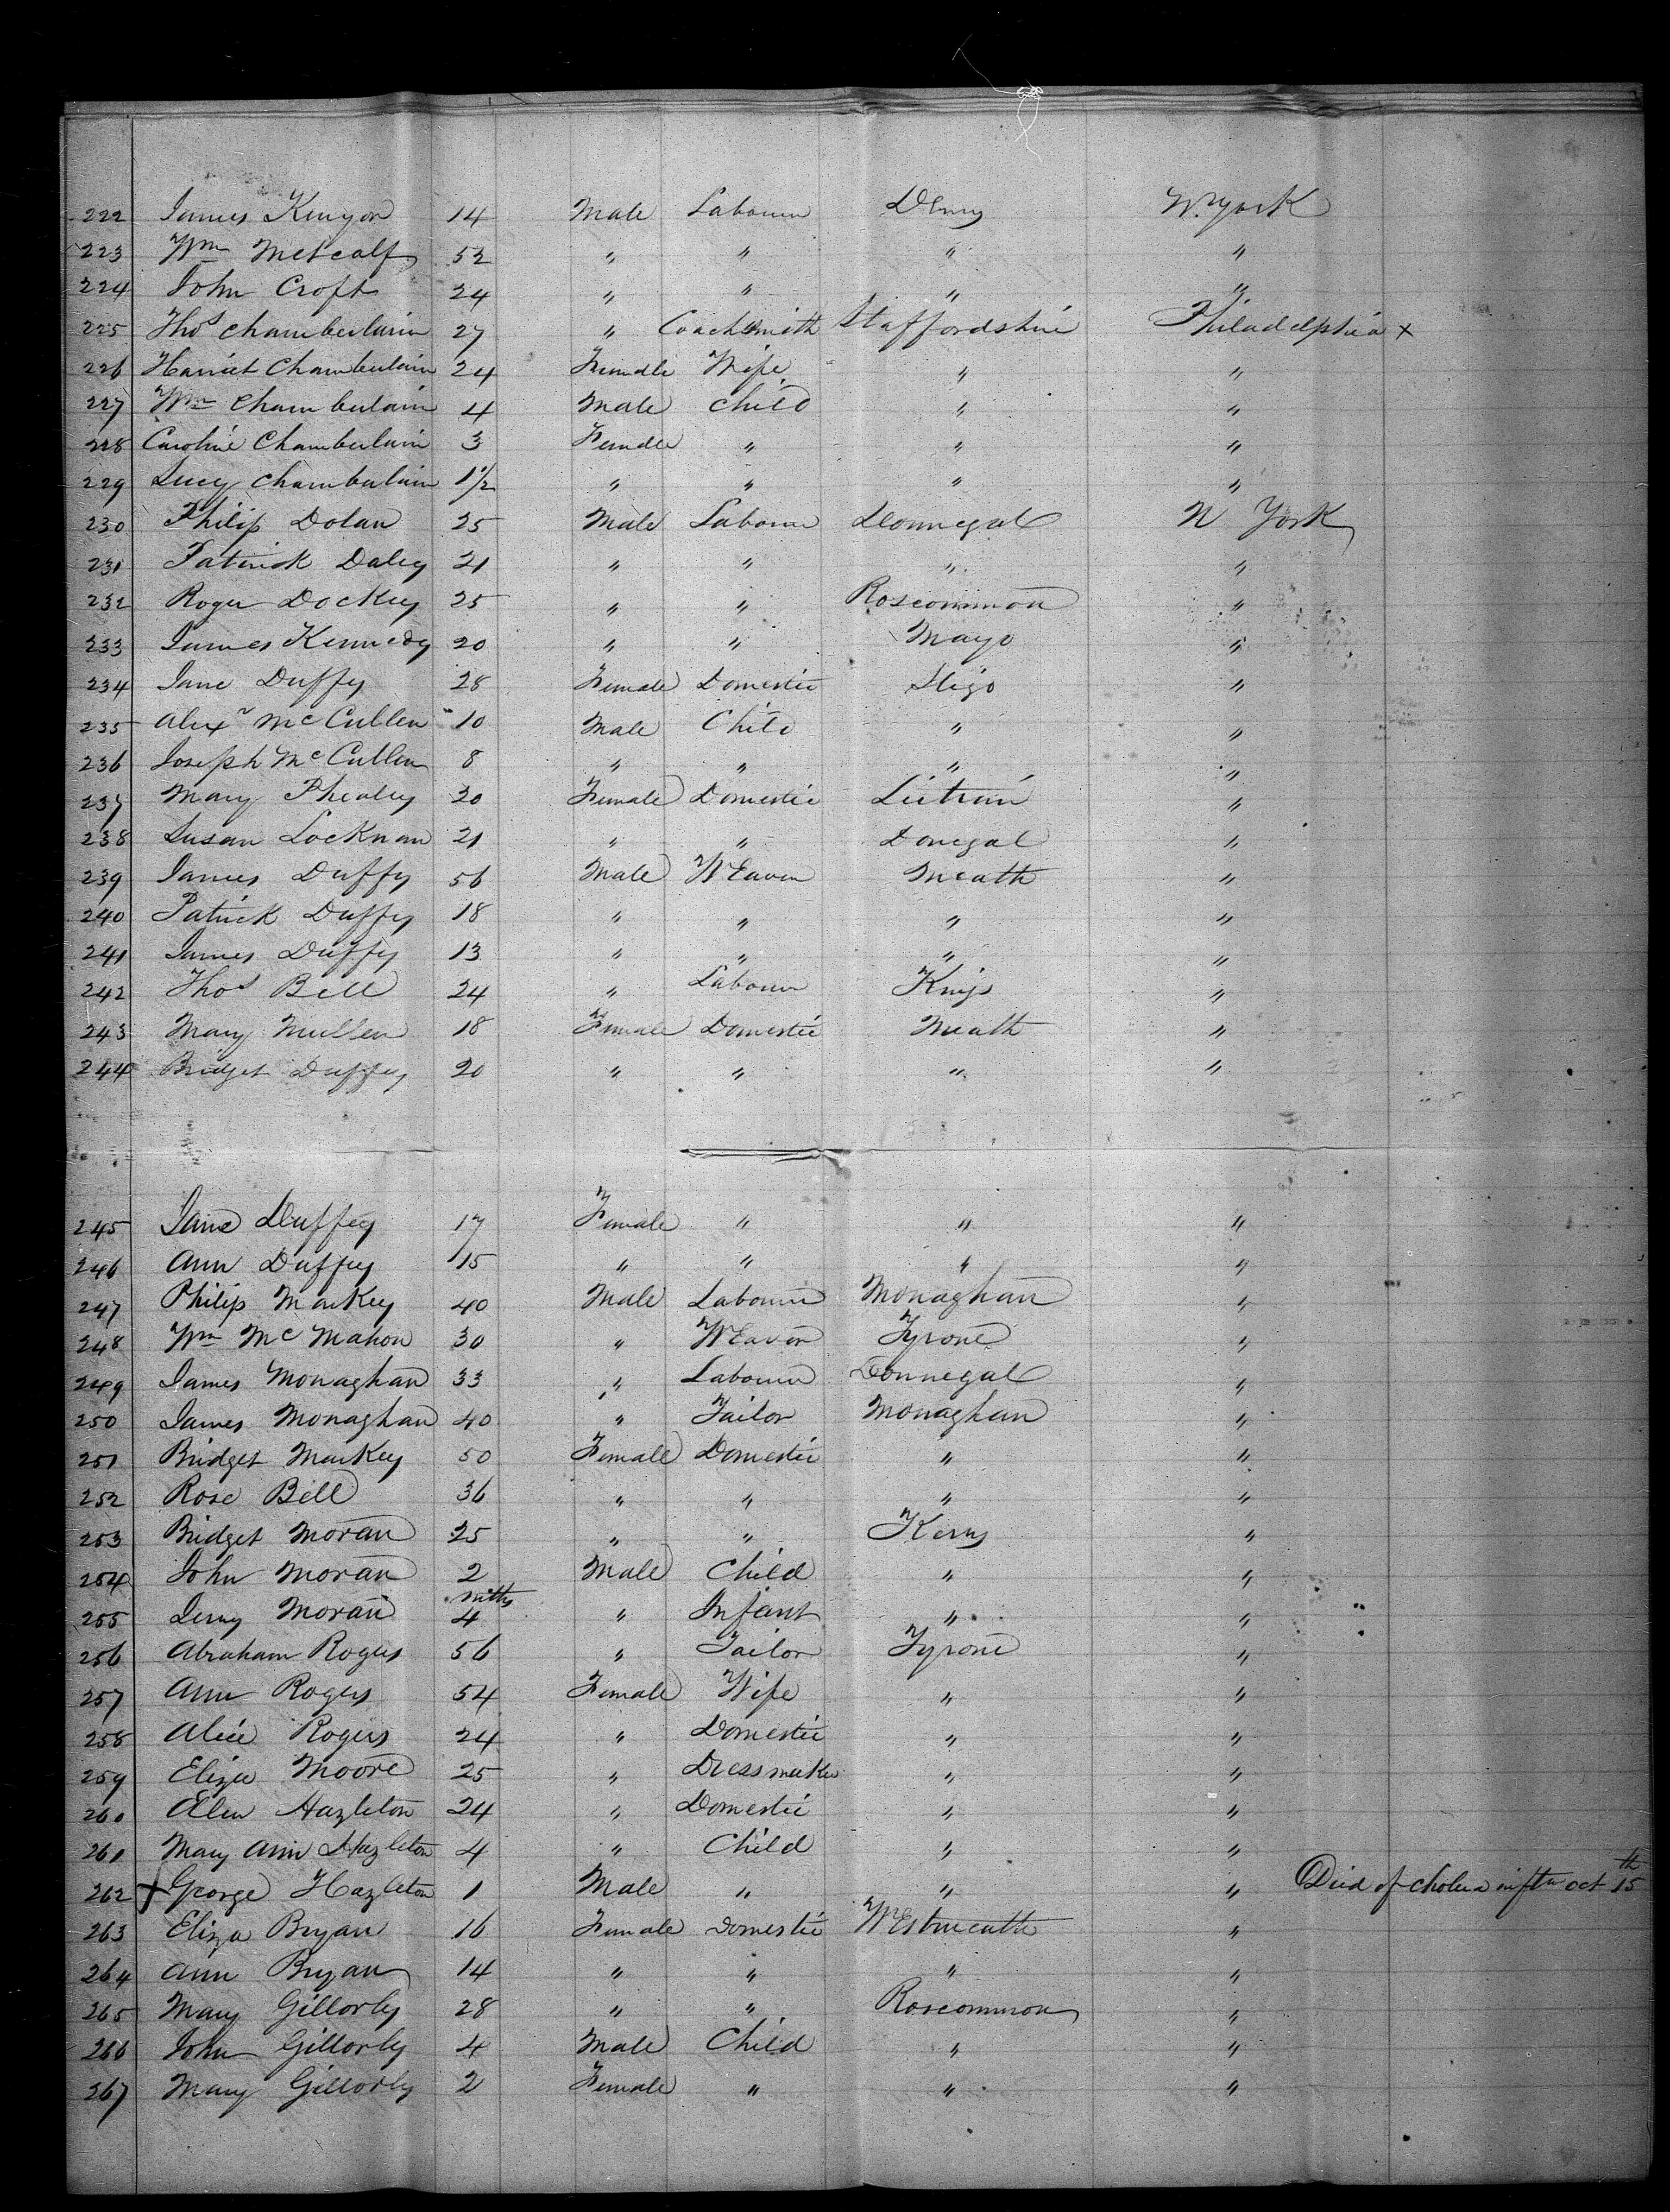 222 James Kenyon 14 Male Labourer Derry N. York
223 Wm Metcalf 52 " " " "
224 John Croft 24 " " " "
225 Thos Chamberlain 27 " Coachsmith Staffordshire Philadelphia x
226 Harriet Chamberlain 24 Female Wife " "
227 Wm Chamberlain 4 Male Child " "
228 Caroline Chamberlain 3 Female " " "
229 Lucy Chamberlain 1½ " " " "
230 Philip Dolan 25 Male Labourer Donnegal N York
231 Patrick Daley 21 " " " "
232 Roger Dockey 25 " " Roscommon "
233 James Kennedy 20 " " Mayo "
234 Jane Duffy 28 Female Domestic Sligo "
235 Alexr McCullen 10 Male Child " "
236 Joseph McCullen 8 " " " "
237 Mary Phealey 20 Female Domestic Leitrim "
238 Susan Locknan 21 " " Donegal "
239 James Duffy 56 Male Weaver Meath "
240 Patrick Duffy 18 " " " "
241 James Duffy 13 " " " "
242 Thos Bell 24 " Labourer Kings "
243 Mary Mullen 18 Female Domestic Meath "
244 Bridget Duffy 20 " " " "
245 Jane Duffey 17 Female " " "
246 Ann Duffey 15 " " " "
247 Philip Markey 40 Male Labourer Monaghan "
248 Wm McMahon 30 " Weavor Tyrone "
249 James Monaghan 33 " Labourer Donnegal "
250 James Monaghan 40 " Tailor Monaghan "
251 Bridget Markey 50 Female Domestic " "
252 Rose Bell 36 " " " "
253 Bridget Moran 25 " " Kerry "
254 John Moran 2 Male Child " "
255 Jerry Moran mths 4 " Infant " "
256 Abraham Rogers 56 " Tailor Tyrone "
257 Ann Rogers 54 Female Wife " "
258 Alice Rogers 24 " Domestic " "
259 Eliza Moore 25 " Dressmaker " "
260 Ellen Hazleton 24 " Domestic " "
261 Mary Ann Hazleton 4 " Child " "
262 x George Hazleton 1 Male " " " Died of cholera oct 15th
263 Eliza Bryan 16 Female Domestic Westmeath "
264 Ann Bryan 14 " " " "
265 Mary Gillorly 28 " " Roscommon "
266 John Gillorly 4 Male Child " "
267 Mary Gillorly 2 Female " " "